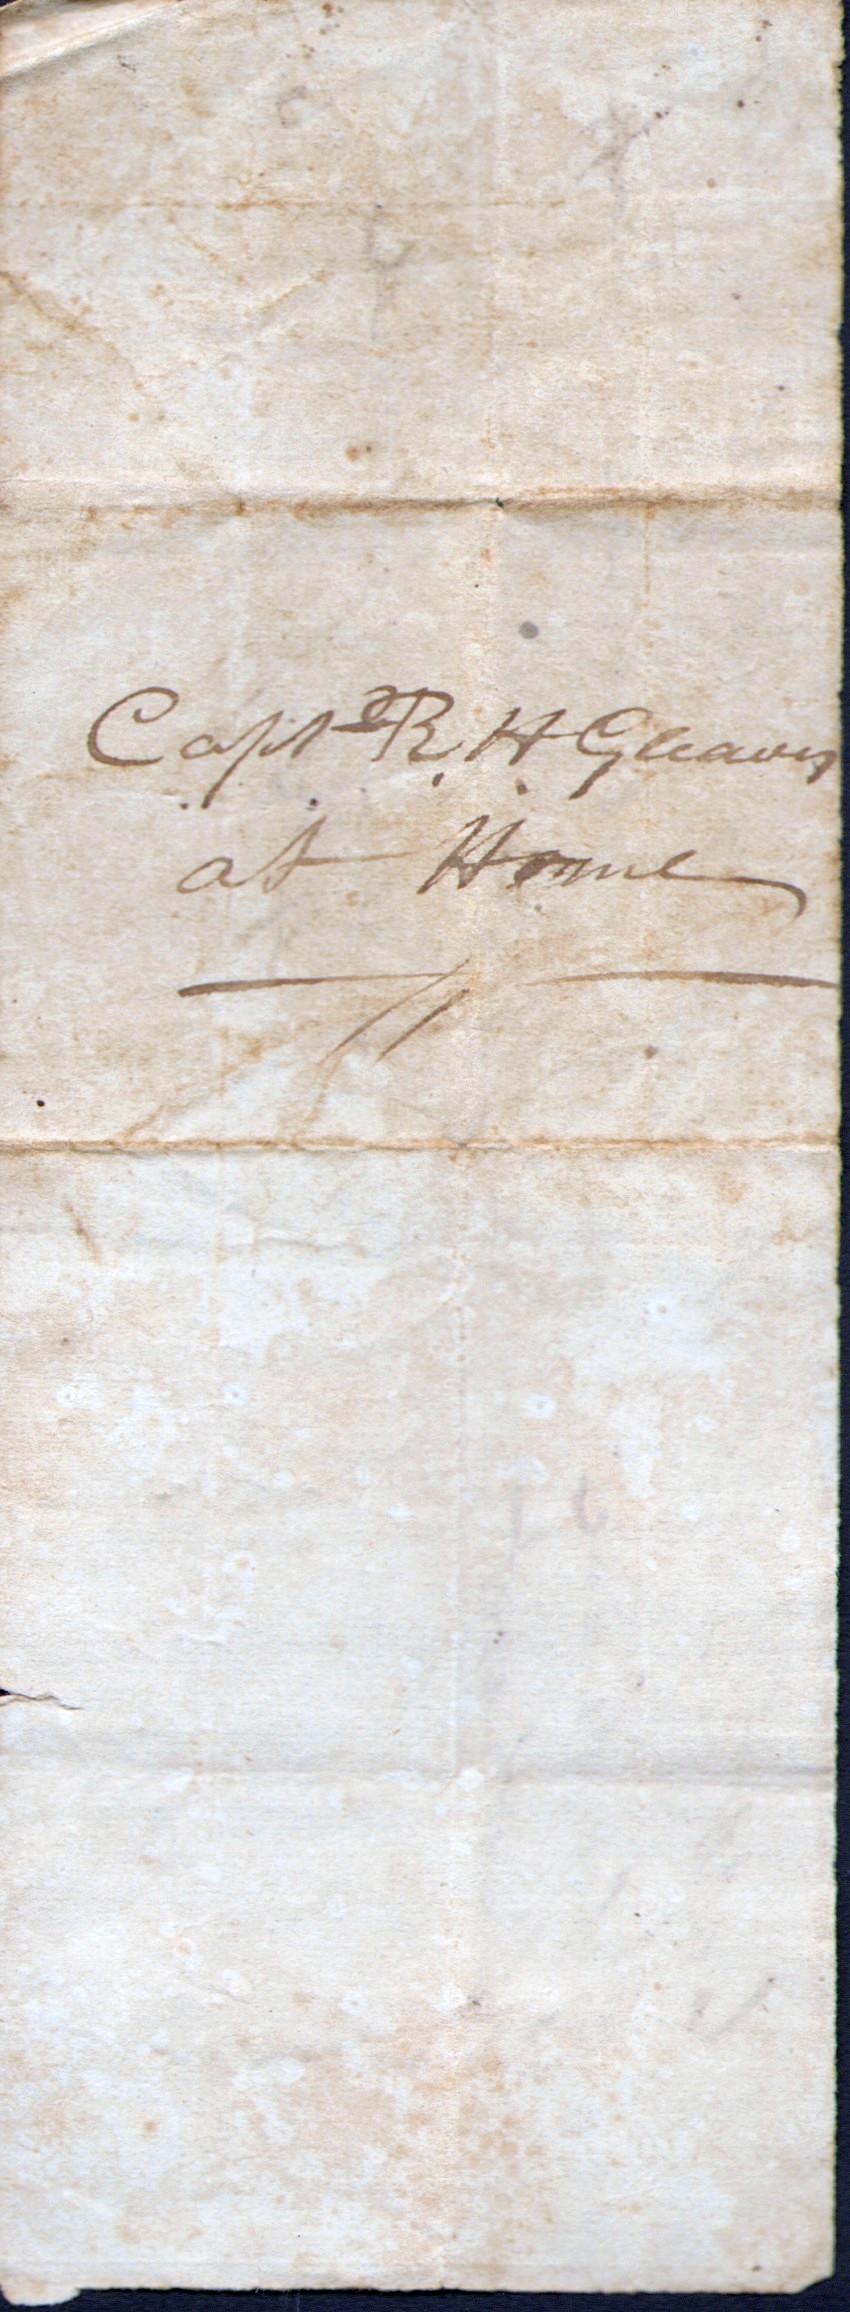 Capt. R. H Gleaves
at Home